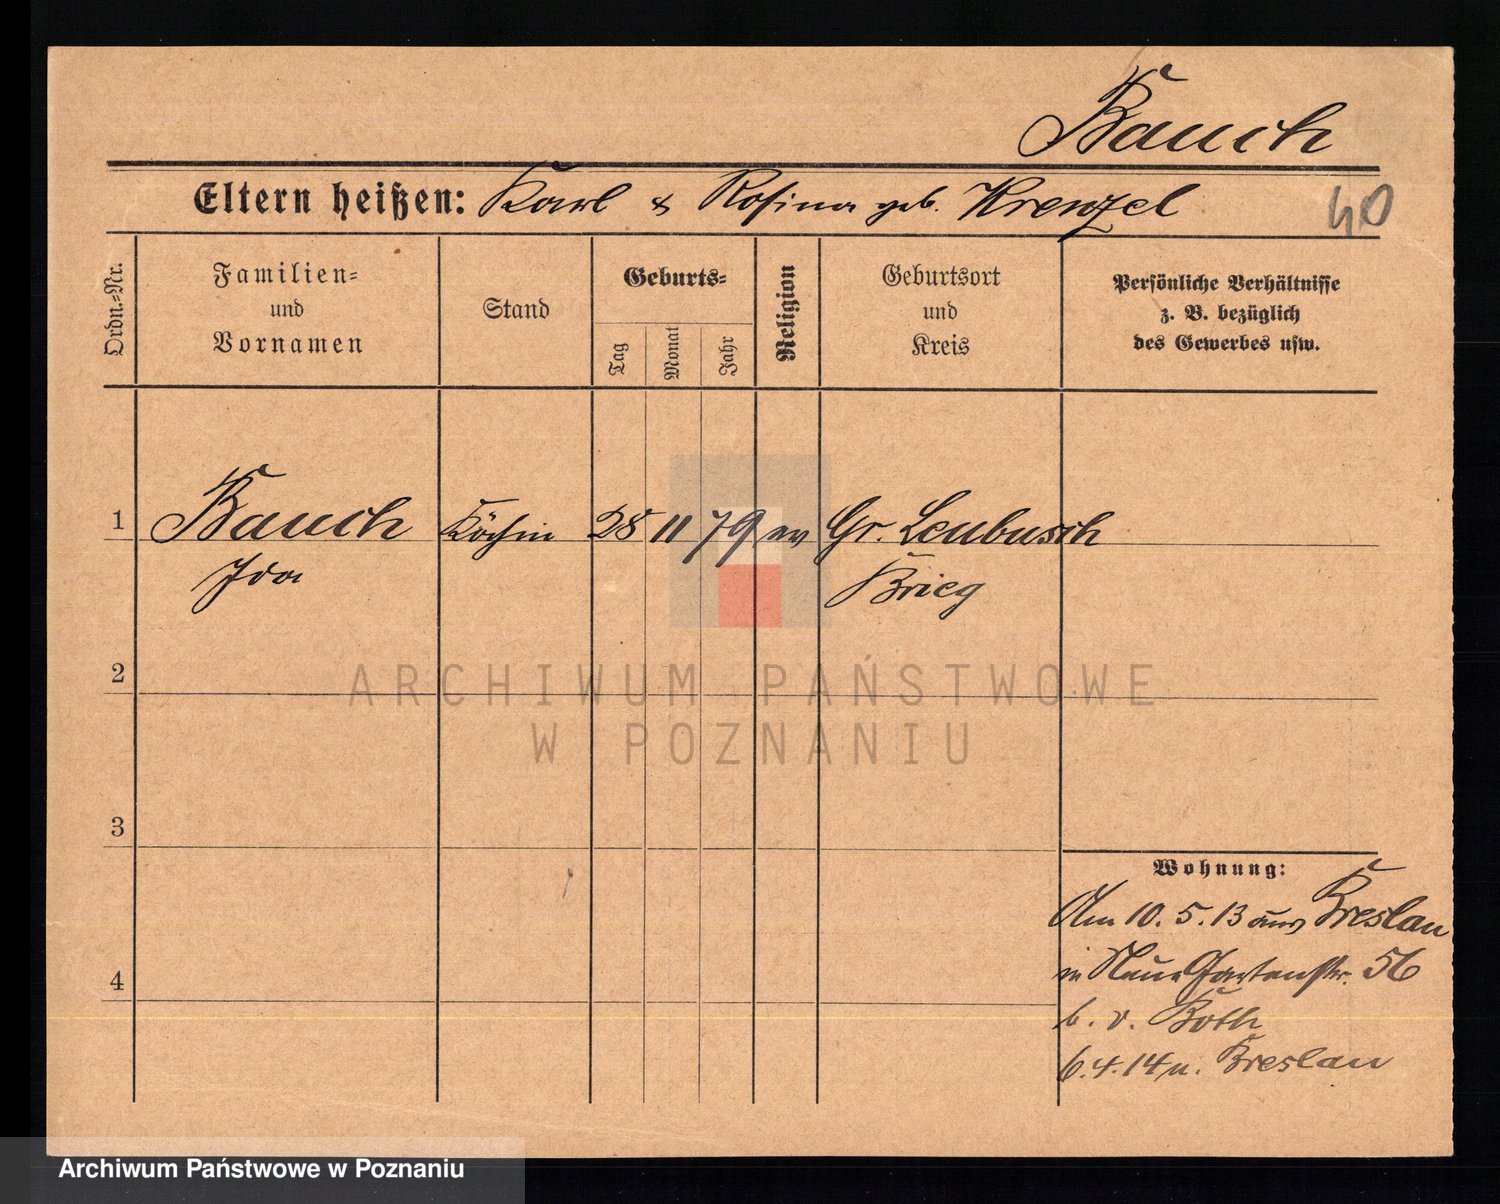 Bauch
Eltern heißen: Karl & Rosina geb. Krenzel
40
Ordn.=Nr.
Familien=
und
Vornamen
Stand
Geburts=
Tag
Monat
Jahr
Religion
Geburtsort
und
Kreis
Persönliche Verhältnisse
z. B. bezüglich
des Gewerbes usw.
1 Bauch Köchin 28 11 79 ev Gr. Leubusch
Ida Brieg
2
ARCHIWUM PAŃSTWOWE
W POZNANIU
3
Wohnung:
Am 10.5.13 aus Breslau
in Neue Gartenstr. 56
b. v. Both
4
6.4.14 n. Breslau
Archiwum Państwowe w Poznaniu